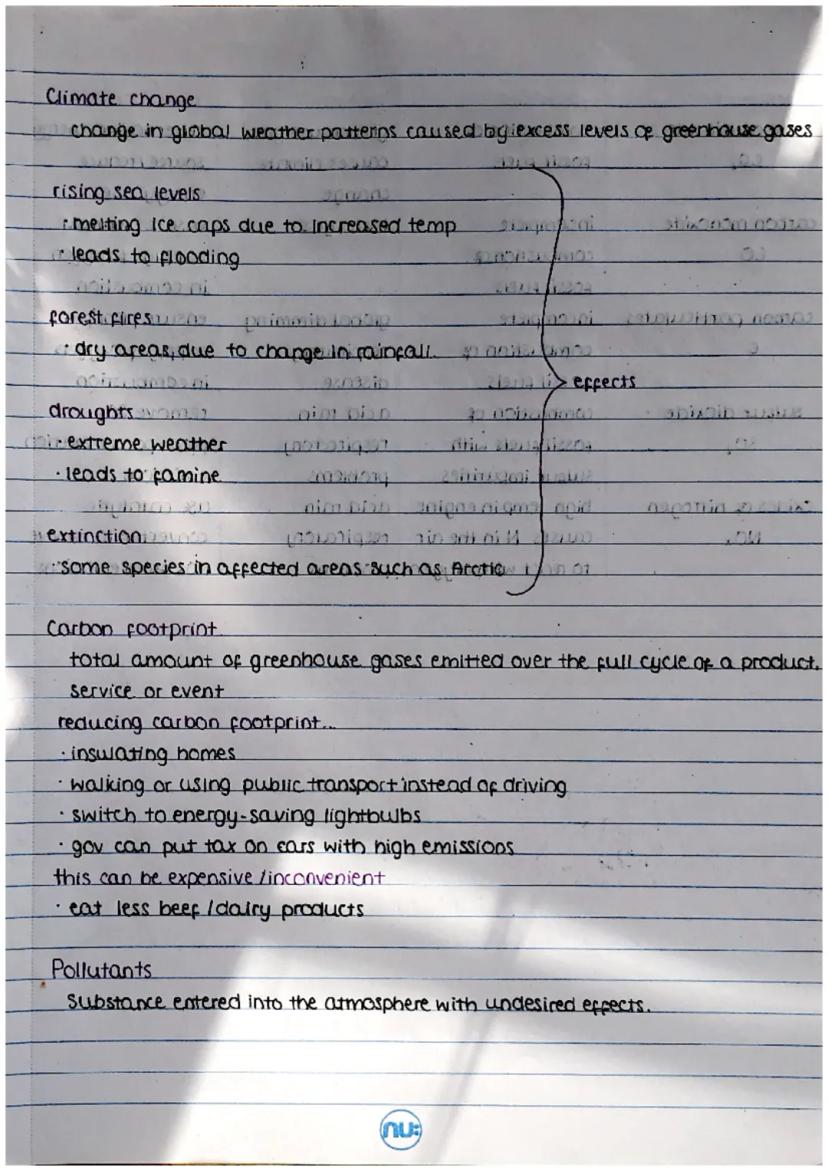 Climate change
change in global weather patterns caused by excess levels of greenhouse gases
rising sea levels
· melting ice caps due to increased temp
· leads to flooding
forest fires
· dry areas, due to change in rainfall.
effects
droughts
· extreme weather
· leads to famine
extinction
· some species in affected areas such as Arctic
Carbon footprint
total amount of greenhouse gases emitted over the full cycle of a product,
service or event
reducing carbon footprint...
· insulating homes
· walking or using public transport instead of driving
· switch to energy-saving lightbulbs
· gov can put tax on cars with high emissions
this can be expensive / inconvenient
· eat less beef / dairy products
Pollutants
substance entered into the atmosphere with undesired effects.
nu: